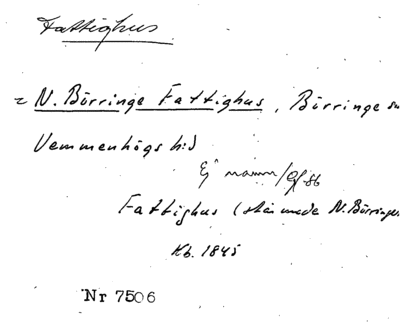 Fattighus
= N. Börringe Fattighus, Börringe sn
Vemmenhögs hd
Ej namn/Gf-86
Fattighus (står med N. Börringe
Kb. 1845
Nr 7506